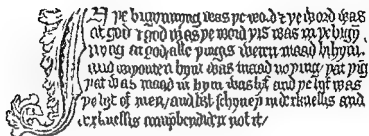 In þe bigynnyng was þe word & þe word was
at god & god was þe word þis was in þe bigyn
nyng at god alle þingis weren maad bi hym
and wiþouten hym was maad no þing þat þing
þat was maad in hym was lyf and þe lyf was
þe lyȝt of men / and liȝt schyneþ in derknessis and
derknessis comprehendiden not it /